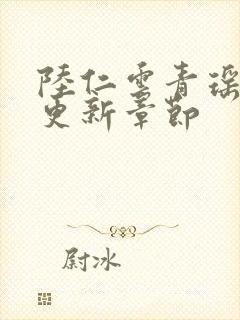 陸仁雲青瑶
更新章節
尉冰